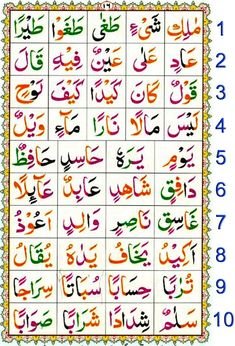 مٰلِكِ شَىْءٍ طَغٰى طَغَوْا طَيْرًا 1
عَادٍ عَلٰى عَيْنٌ فِيْهِ قَالَ 2
قَوْلٌ كَانَ كَيْدًا كَيْفَ لَوْحٍ 3
لَيْسَ مَالًا نَارًا مَآءٍ وَيْلٌ 4
يَوْمٍ يَرَهٗ حَاسِدٍ حَافِظٌ 5
دَافِقٍ شَاهِدٍ عَابِدٌ عَآئِلًا 6
غَاسِقٍ نَاصِرٍ وَالِدٍ اَعُوْذُ 7
اَكِيْدُ يَخَافُ يَدٰهُ يُقَالُ 8
تُرٰبًا حِسَابًا سُبَاتًا سِرَاجًا 9
سَلٰمٌ شِدَادًا شَرَابًا صَوَابًا 10